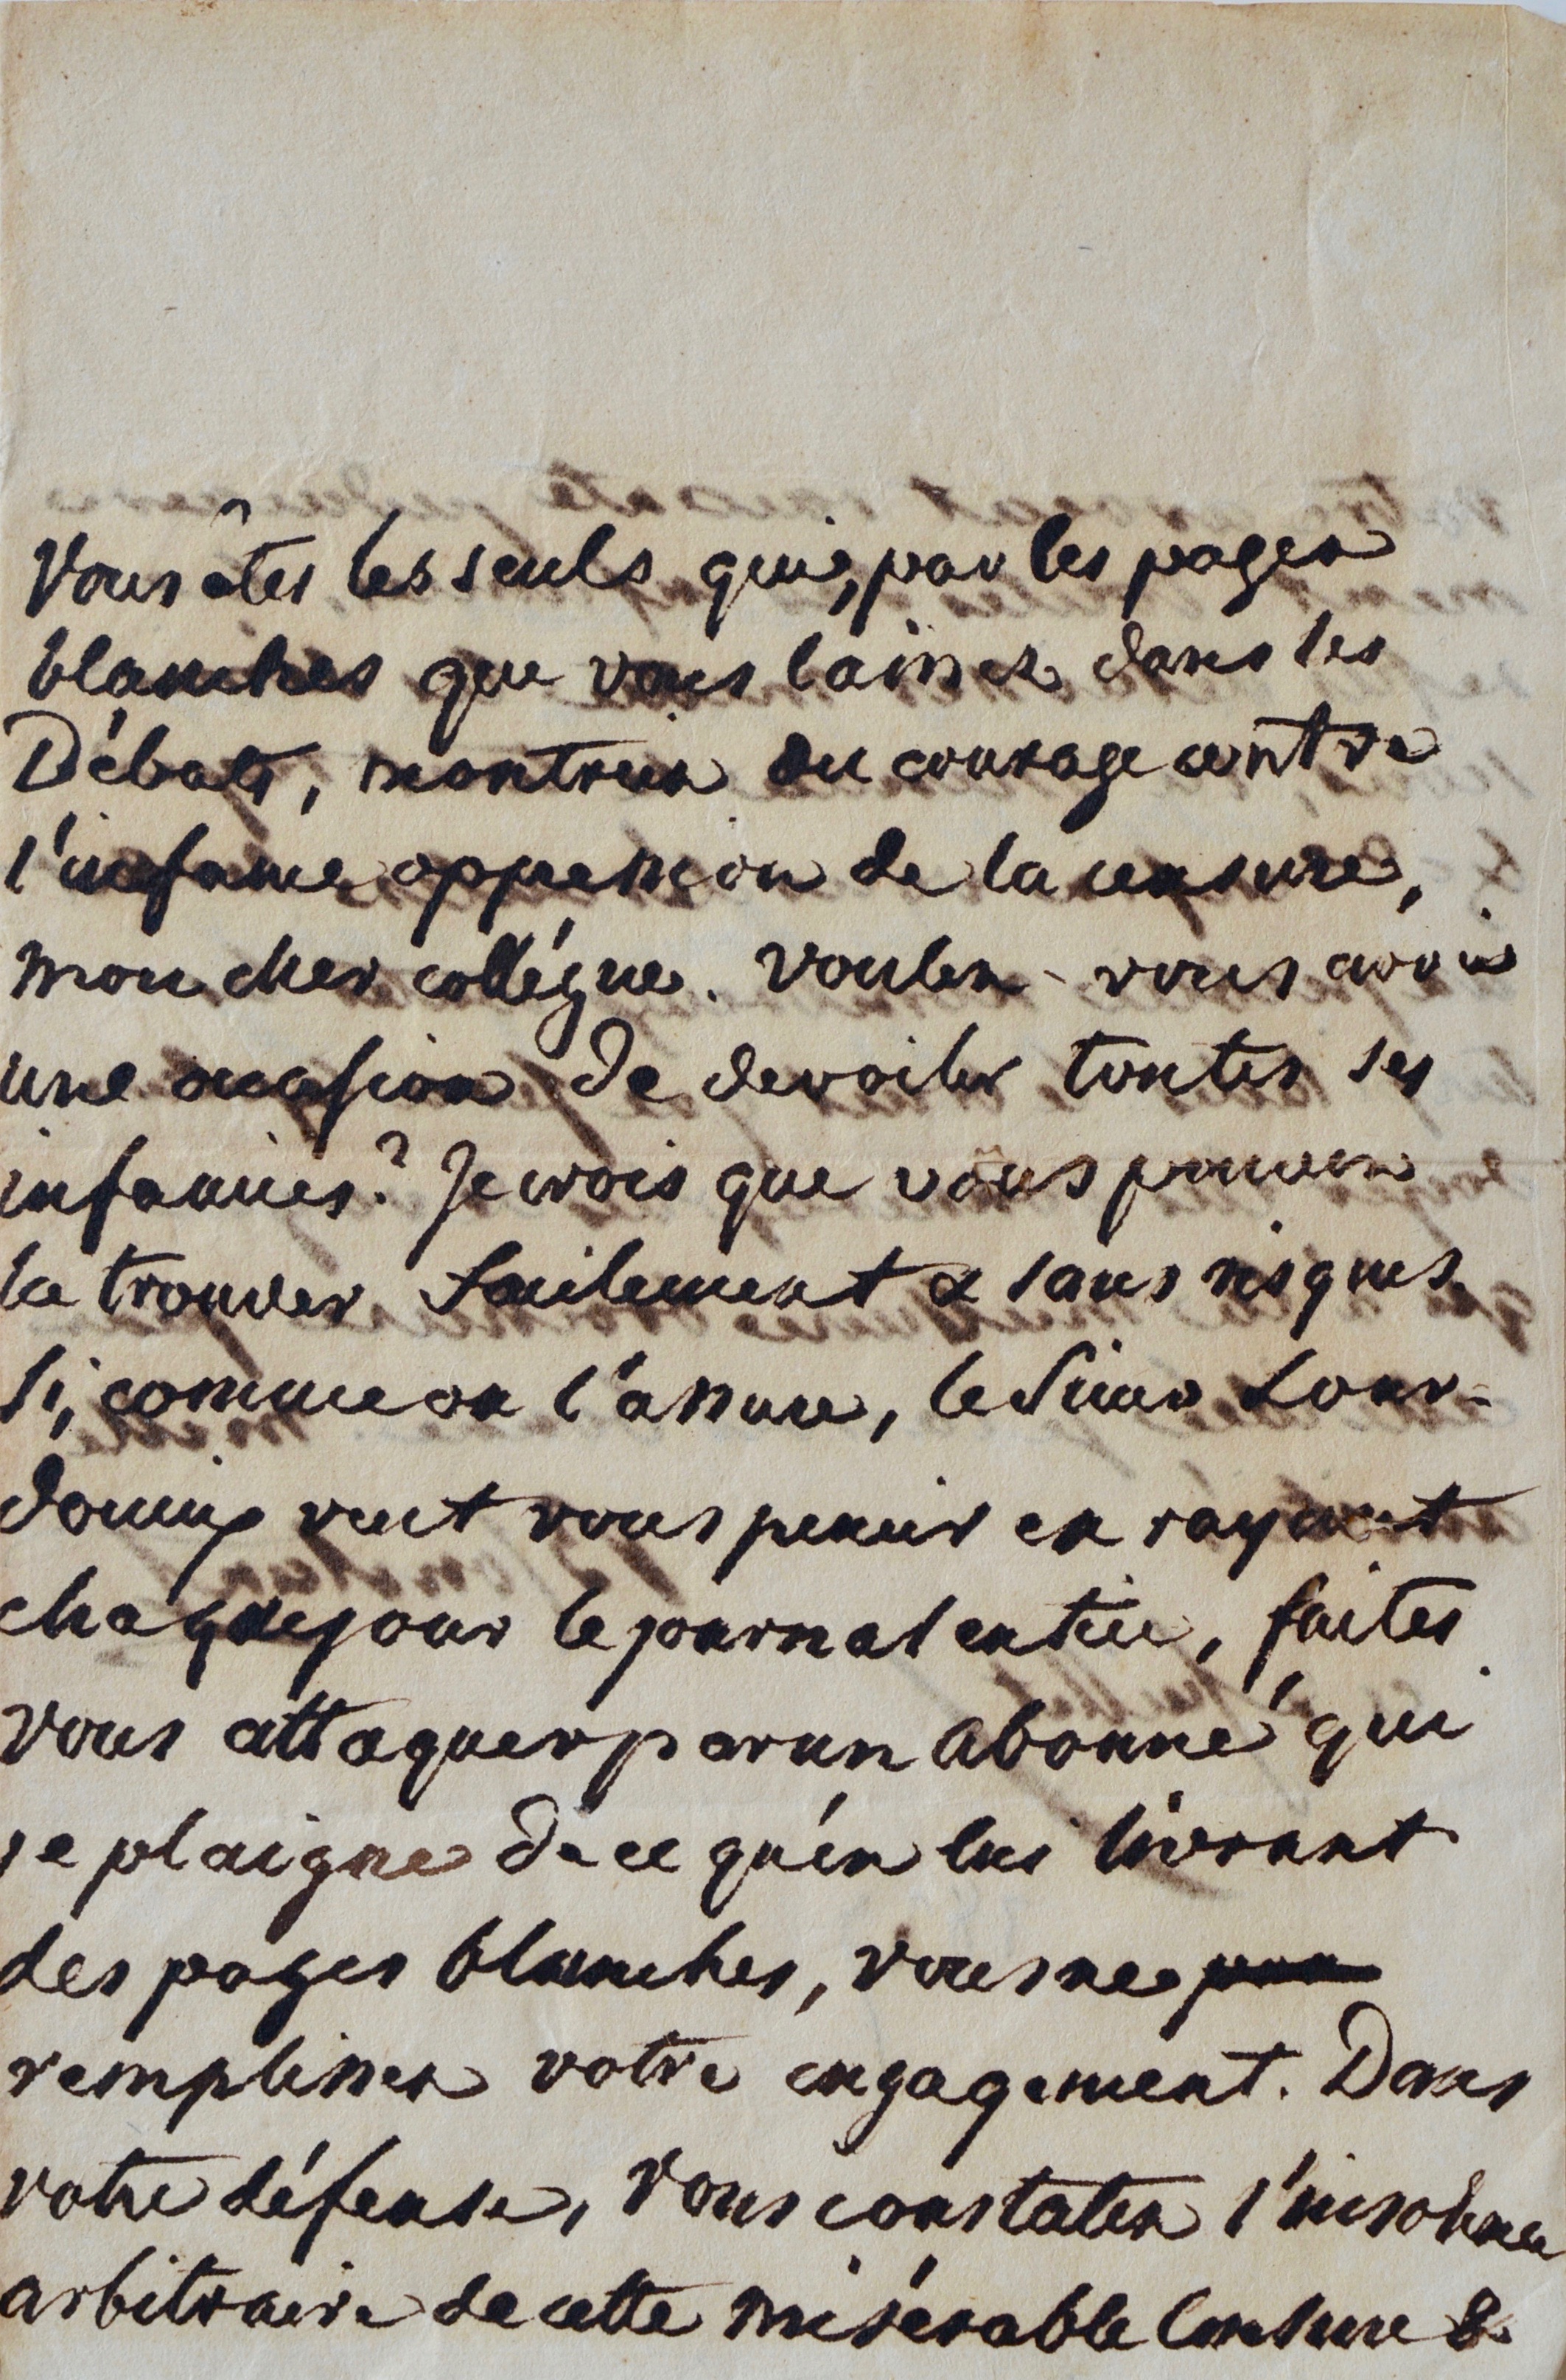 Vous êtes les seuls qui, par les pages
blanches que vous laissez dans les
Débats, montriez du courage contre
l'infame oppression de la censure,
mon cher collégue. Voulez-vous avoir
une occasion de devoiler toutes ses
infamies? Je crois que vous pouvez
la trouver facilement & sans risques.
Si, comme on l'assure, le Sieur Lour-
doueix veut vous punir en rayant
chaque jour le journal entier, faites
vous attaquer par un abonné qui
se plaigne de ce qu'en lui livrant
des pages blanches, vous ne
remplissez votre engagement. Dans
votre défense, vous constatez l'insolence
arbitraire de cette misérable Censure &